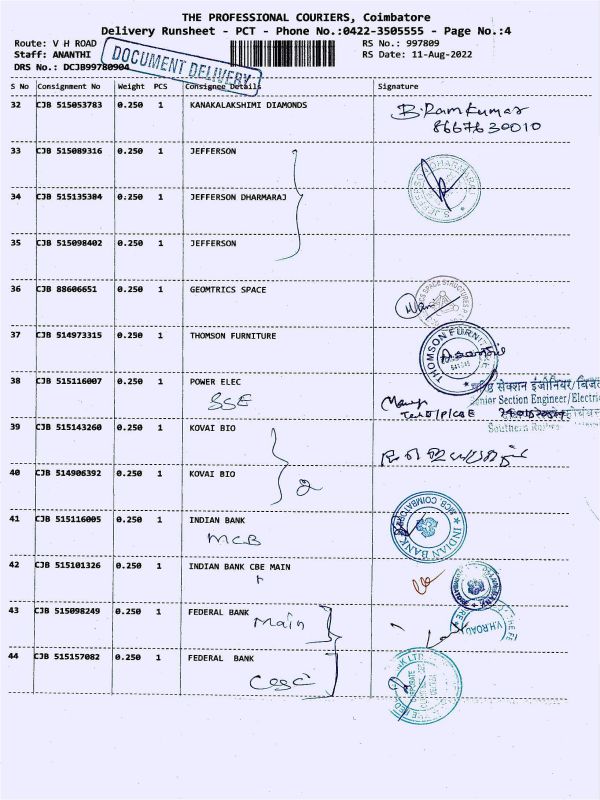 THE PROFESSIONAL COURIERS, Coimbatore
Delivery Runsheet - PCT - Phone No.:0422-3505555 - Page No.:4
Route: V H ROAD RS No.: 997809
Staff: ANANTHI RS Date: 11-Aug-2022
DRS No.: DCJB99780904
DOCUMENT DELIVERY
S No Consignment No Weight PCS Consignee Details Signature
32 CJB 515053783 0.250 1 KANAKALAKSHIMI DIAMONDS B. Ram Kumar
8667630010
33 CJB 515089316 0.250 1 JEFFERSON
34 CJB 515135304 0.250 1 JEFFERSON DHARMARAJ
S. JEFFERSON DHARMARAJ
35 CJB 515098402 0.250 1 JEFFERSON
36 CJB 88606651 0.250 1 GEOMTRICS SPACE
SPACE STRUCTURES
37 CJB 514973315 0.250 1 THOMSON FURNITURE
THOMSON FURNIT
38 CJB 515116007 0.250 1 POWER ELEC
SSE
सेक्शन इंजीनियर
Senior Section Engineer/Electric
Southern
39 CJB 515143260 0.250 1 KOVAI BIO
40 CJB 514906392 0.250 1 KOVAI BIO
2
41 CJB 515116005 0.250 1 INDIAN BANK
MCB
INDIAN BANK MCB, COIMBATORE
42 CJB 515101326 0.250 1 INDIAN BANK CBE MAIN
43 CJB 515098249 0.250 1 FEDERAL BANK
Main
V.H.ROAD
44 CJB 515157082 0.250 1 FEDERAL BANK